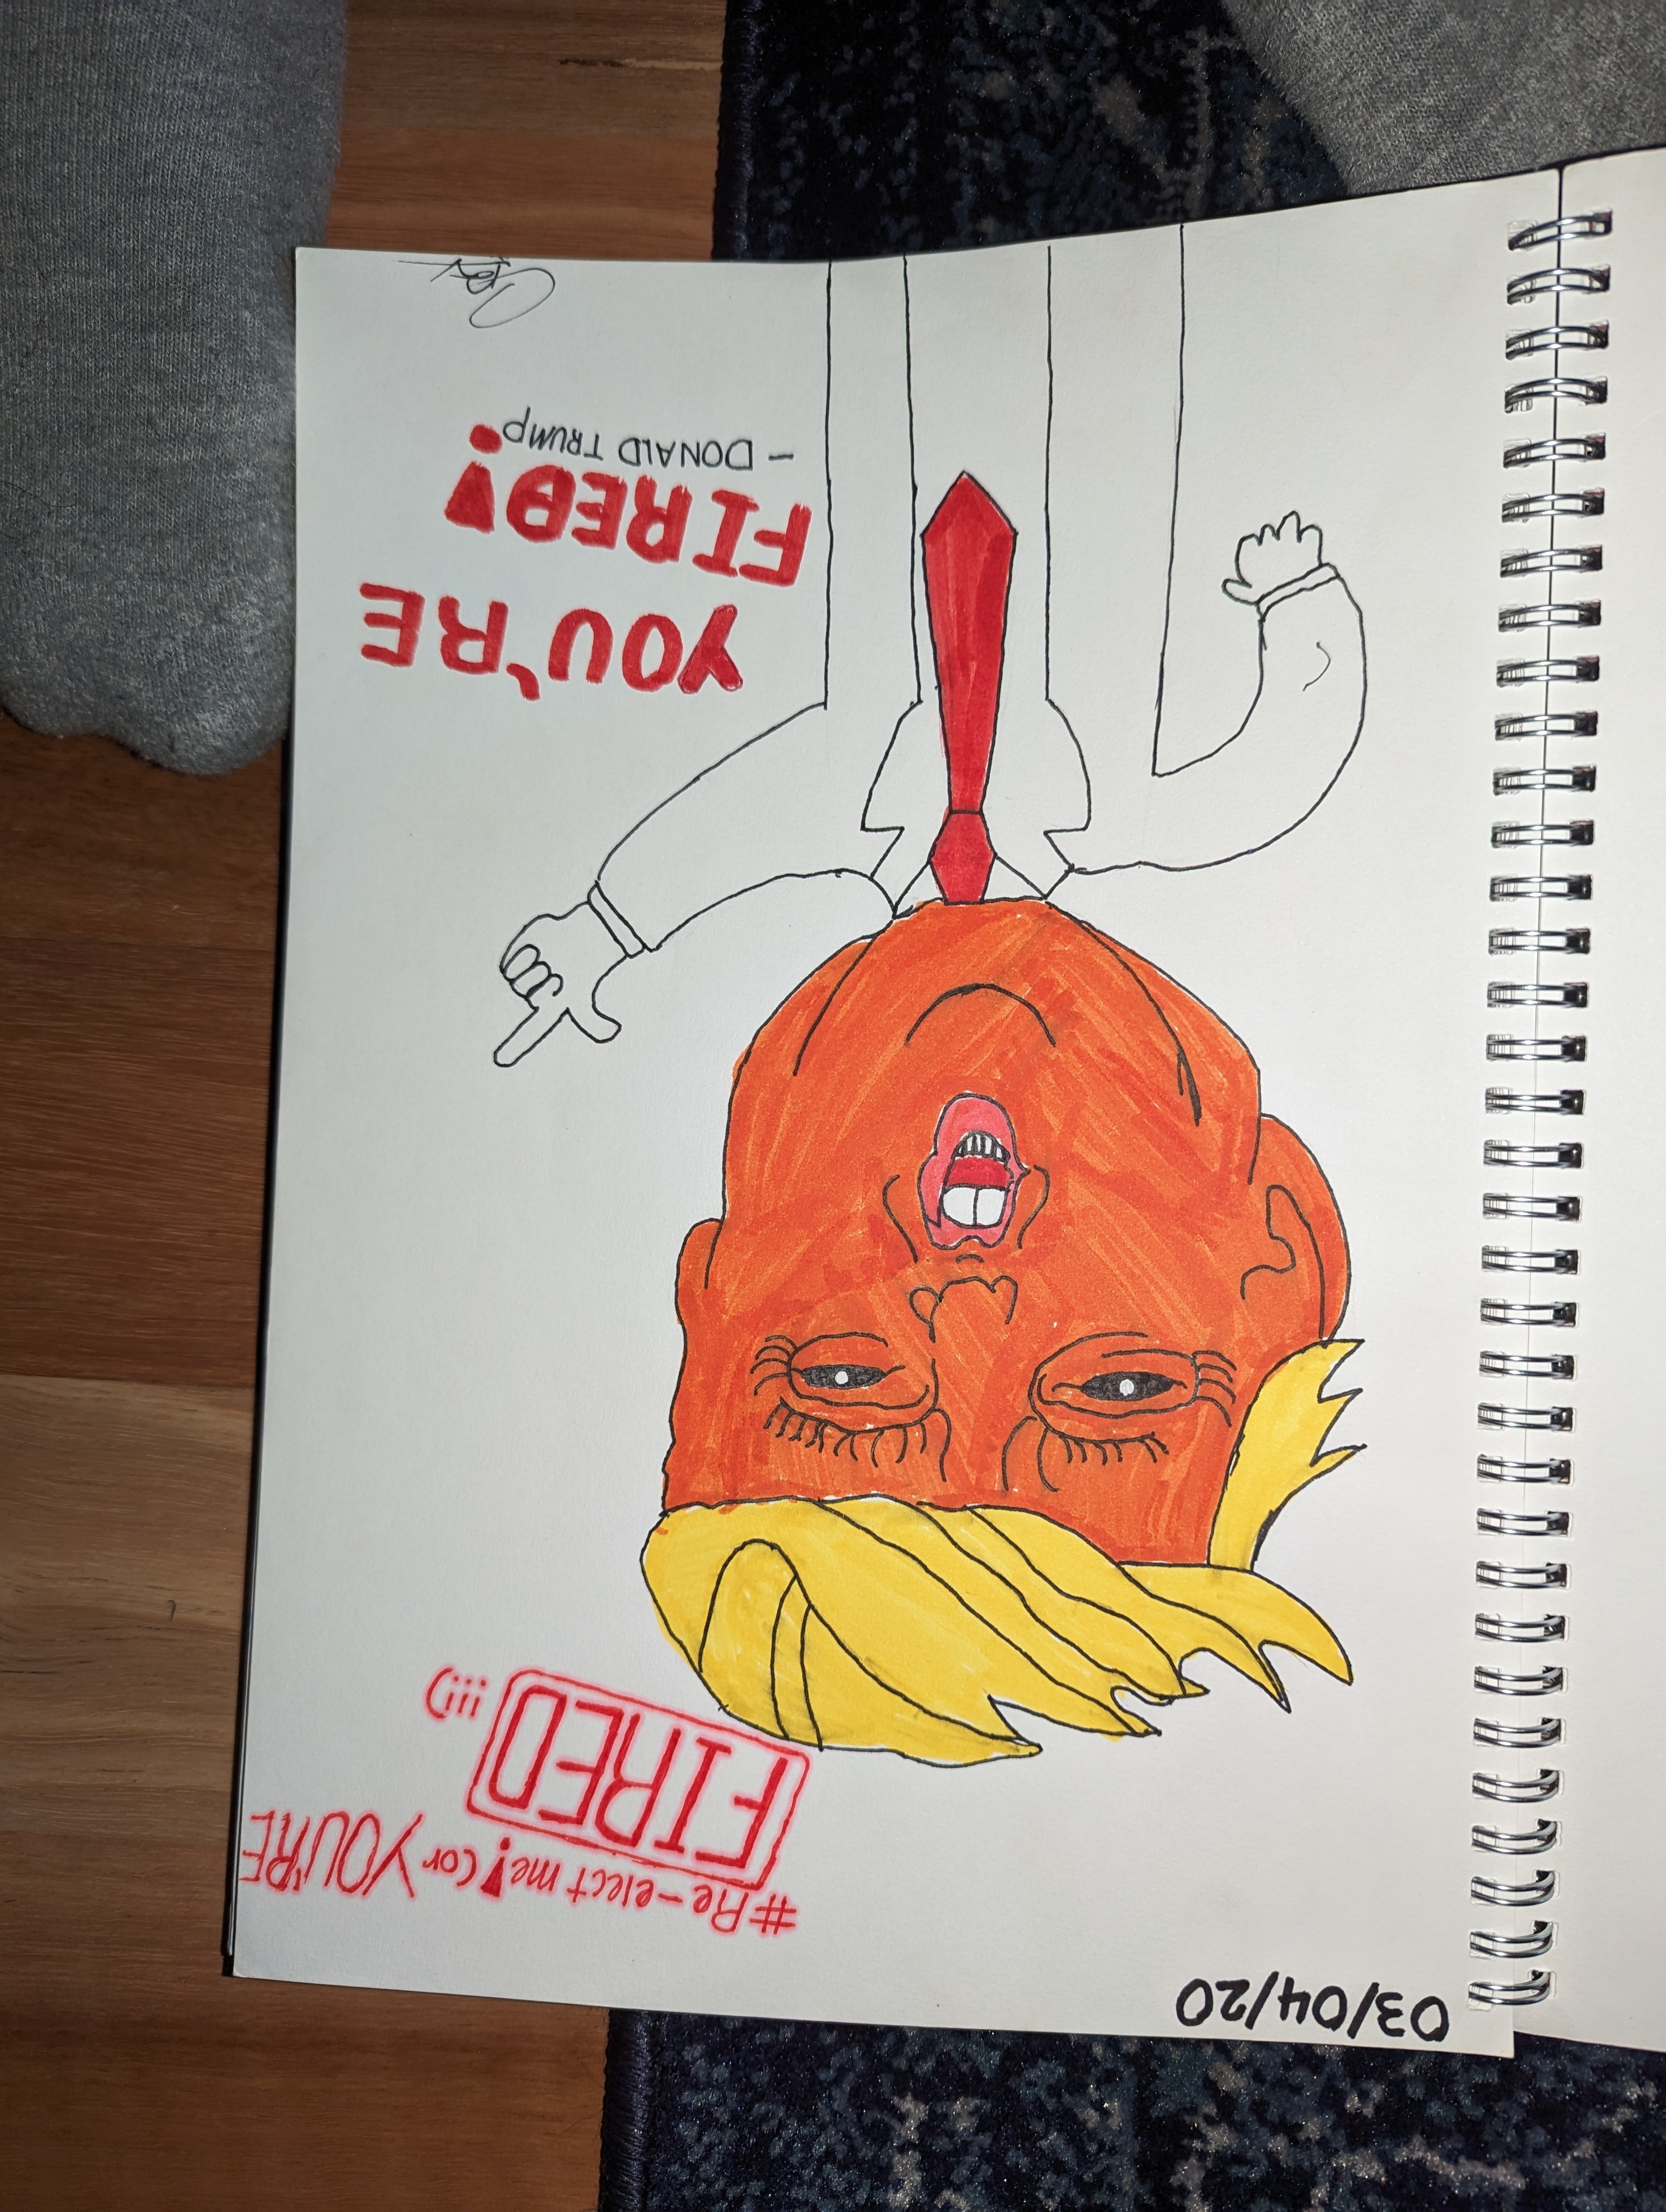 03/04/20
#Re-elect me! (or YOU'RE
FIRED !!!)
YOU'RE
FIRED!
- DONALD TRUMP